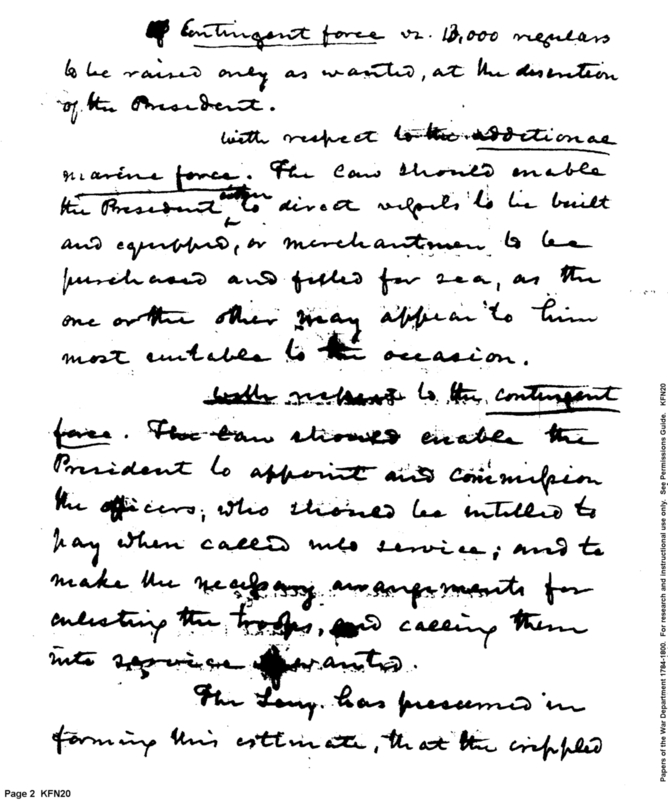 Contingent force vz. 13,000 regulars
to be raised only as wanted, at the discretion
of the President.
with respect to the additional
marine force. The Law should enable
the President either to direct vessels to be built
and equipped, or merchantmen to be
purchased and fitted for sea, as the
one or the other may appear to him
most suitable to the occasion.
with respect to the contingent
force. The Law should enable the
President to appoint and commission
the officers, who should be intitled to
pay when called into service; and to
make the necessary arrangements for
enlisting the troops, and calling them
into service if wanted.
The Secy. has presumed in
forming this estimate, that the crippled
Page 2 KFN20
Papers of the War Department 1784-1800. For research and instructional use only. See Permissions Guide. KFN20